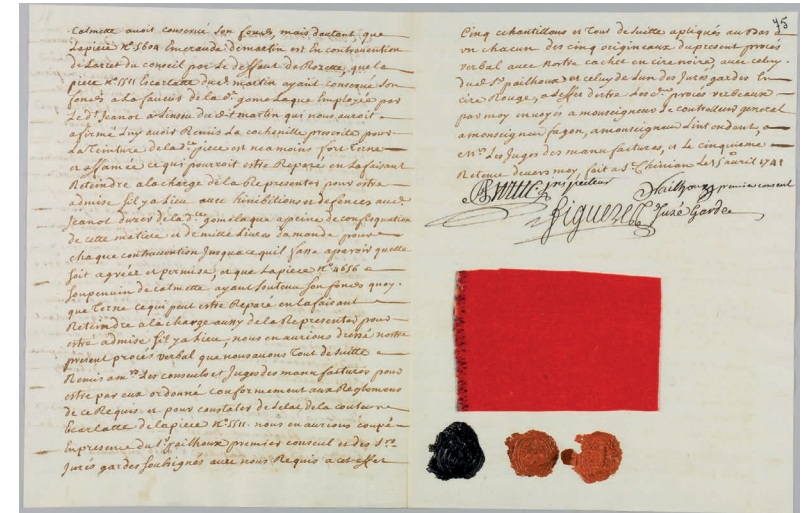 Calmette avoit conservé son fonds, mais dautant, que
Lapiece N° 5604 Emeraude de martin est En contravention
de Larret du conseil par Le deffaut de Rozette, que la
piece N° 5511 Ecarlatte dud. martin ayant conservé son
fonds a la faveur de la d. gome Laque Employée par
Le d. Jeanot a Linsceu du d. martin qui nous auroit
afirmé Luy avoir Remis La cochenille proscrite pour
La Teinture de la d. piece est neamoins fort Terne
et affamée ce qui pourroit estre Reparé en La faisant
Reteindre a la charge de la Representer pour estre
admise sil y a Lieu avec Inhibitions et defences aud.
Jeanot duzer de la d. gome laque a peine de confisquation
de cette matiere et de mille Livres damande pour
chaque contravention Jusqua ce quil fasse aparoir quelle
soit agréée et permise, et que La piece N° 4656
de calmette ayant soutenu son fonds quoy.
que Terne ce qui peut estre Reparé en La faisant
Reteindre a la charge aussy de la Representer pour
estre admise sil y a Lieu, nous en aurions dressé nostre
present procés verbal que nous avons Tout de suitte
Remis a mrs. Les consuls et Juges des manufactures pour
estre par eux ordonné conformement aux Reglemens
de ce Requis et pour constater de Letat de la couleur
Ecarlatte de la piece N° 5511. nous en aurions coupé
En presence du Sr. pailhoux premier consul et des Srs.
Jurés gardes soussignés avec nous Requis a cet effet
75
Cinq echantillons et Tout de suitte apliqués au Bas d
un chacun des cinq origineaux du present procés
verbal avec nostre cachet en cire noire, avec celuy.
dud. Sr. pailhoux et celuy de Lun des Jurés gardes En
cire Rouge, a Leffet destre Les d. procés verbeaux
par moy envoyés a monseigneur Le controlleur general
a monseigneur fagon, a monseigneur Lintendant, a
mrs. Les Juges des manufactures, et Le cinquieme
Retenu devers moy, fait a St. Chinian Le 15 avril 1741
inspecteur
Pailhoux premier consul
figueres
Juré Garde